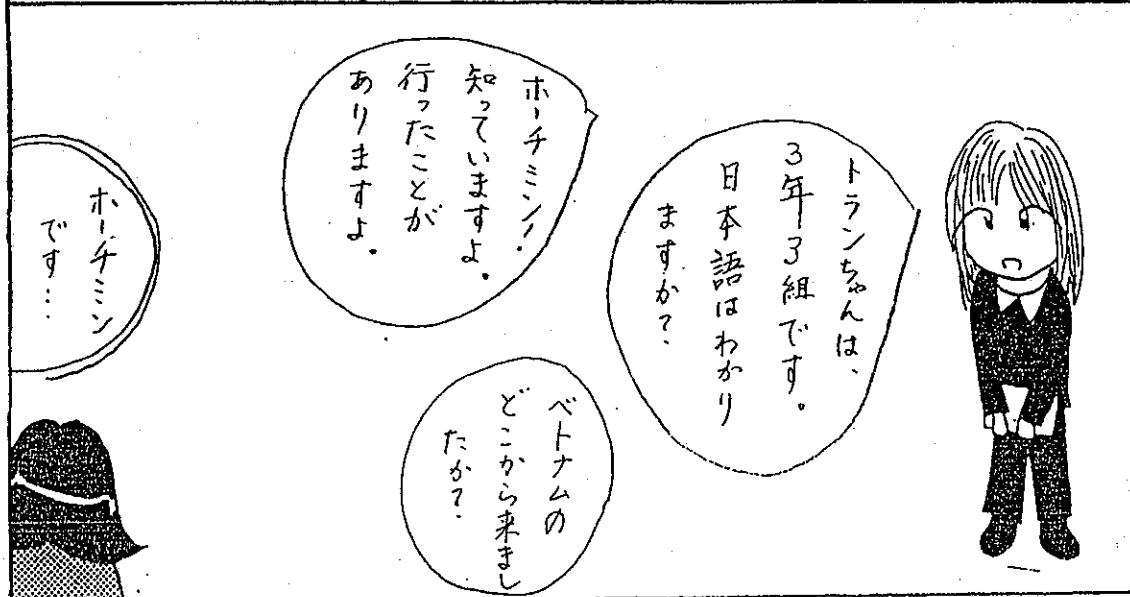 トランちゃんは、
3年3組です。
日本語はわかり
ますか?
ベトナムの
どこから来まし
たか?
ホーチミン
です…
ホーチミン!
知っていますよ。
行ったことが
ありますよ。